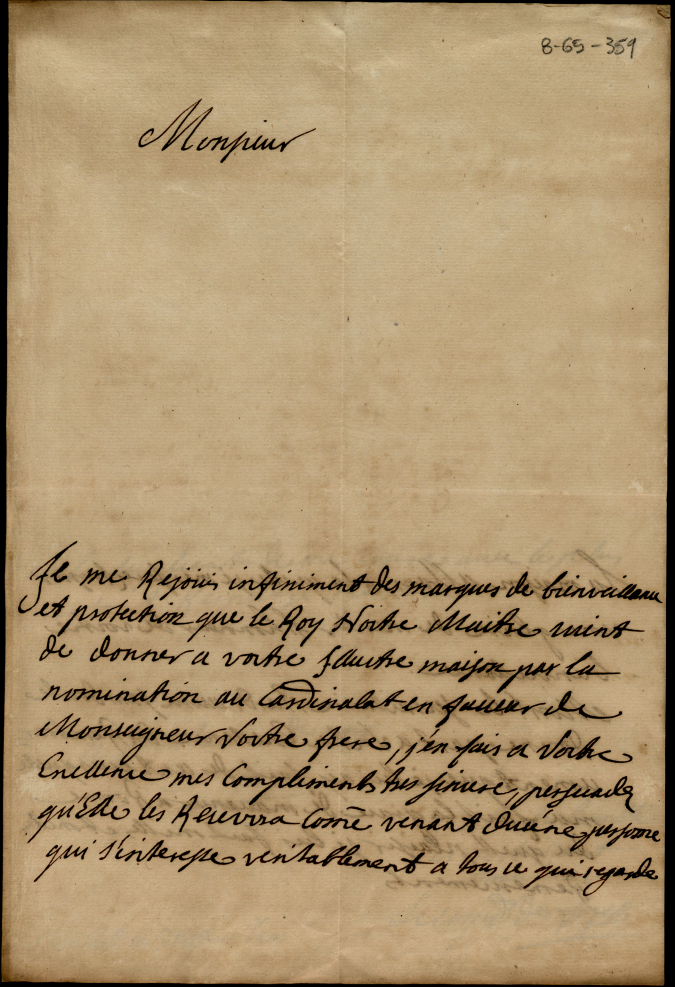 8-65-359
Monsieur
Je me Rejoüis infiniment des marques de bienveillance
et protection que le Roy Notre Maitre vient
de donner a votre Illustre maison par la
nomination au Cardinalat en faveur de
Monseigneur Votre frere, j'en fais a Votre
Excellence mes Compliments tres sincere, persuadé
qu'Elle les Recevira Come venant du'ne persone
qui s'interesse veritablement a tous ce qui regarde